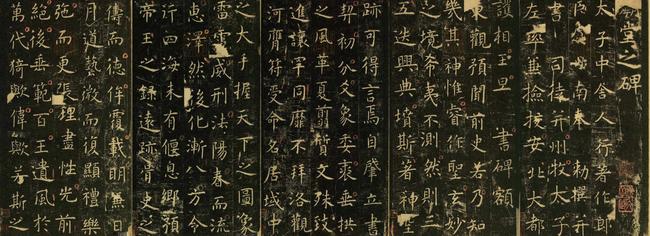 堂之碑
太子中舍人行著作郎
世南奉敕撰并
書 司徒并州牧太子
左率兼檢校安北大都
護相王旦 書碑額
東觀預聞前史若乃知
幾其神惟睿作聖玄妙
之境希夷不測然則三
五迭興典墳斯著神聖
跡可得言焉自肇立書
契初分爻象委裘垂拱
之風革夏翦質文殊致
進讓罕同靡不拜洛觀
河膺符受命名居域中
之大手握天下之圖象
雷電威刑法陽春而流
惠澤然後化漸八方令
行四海未有偃息鄉預
帝王之錄遠跡胥史之
儔而德侔覆載明兼日
月道藝微而復顯禮樂
弛而更張理盡性光前
絕後垂範百王遺風於
萬代猗歟偉歟若斯之